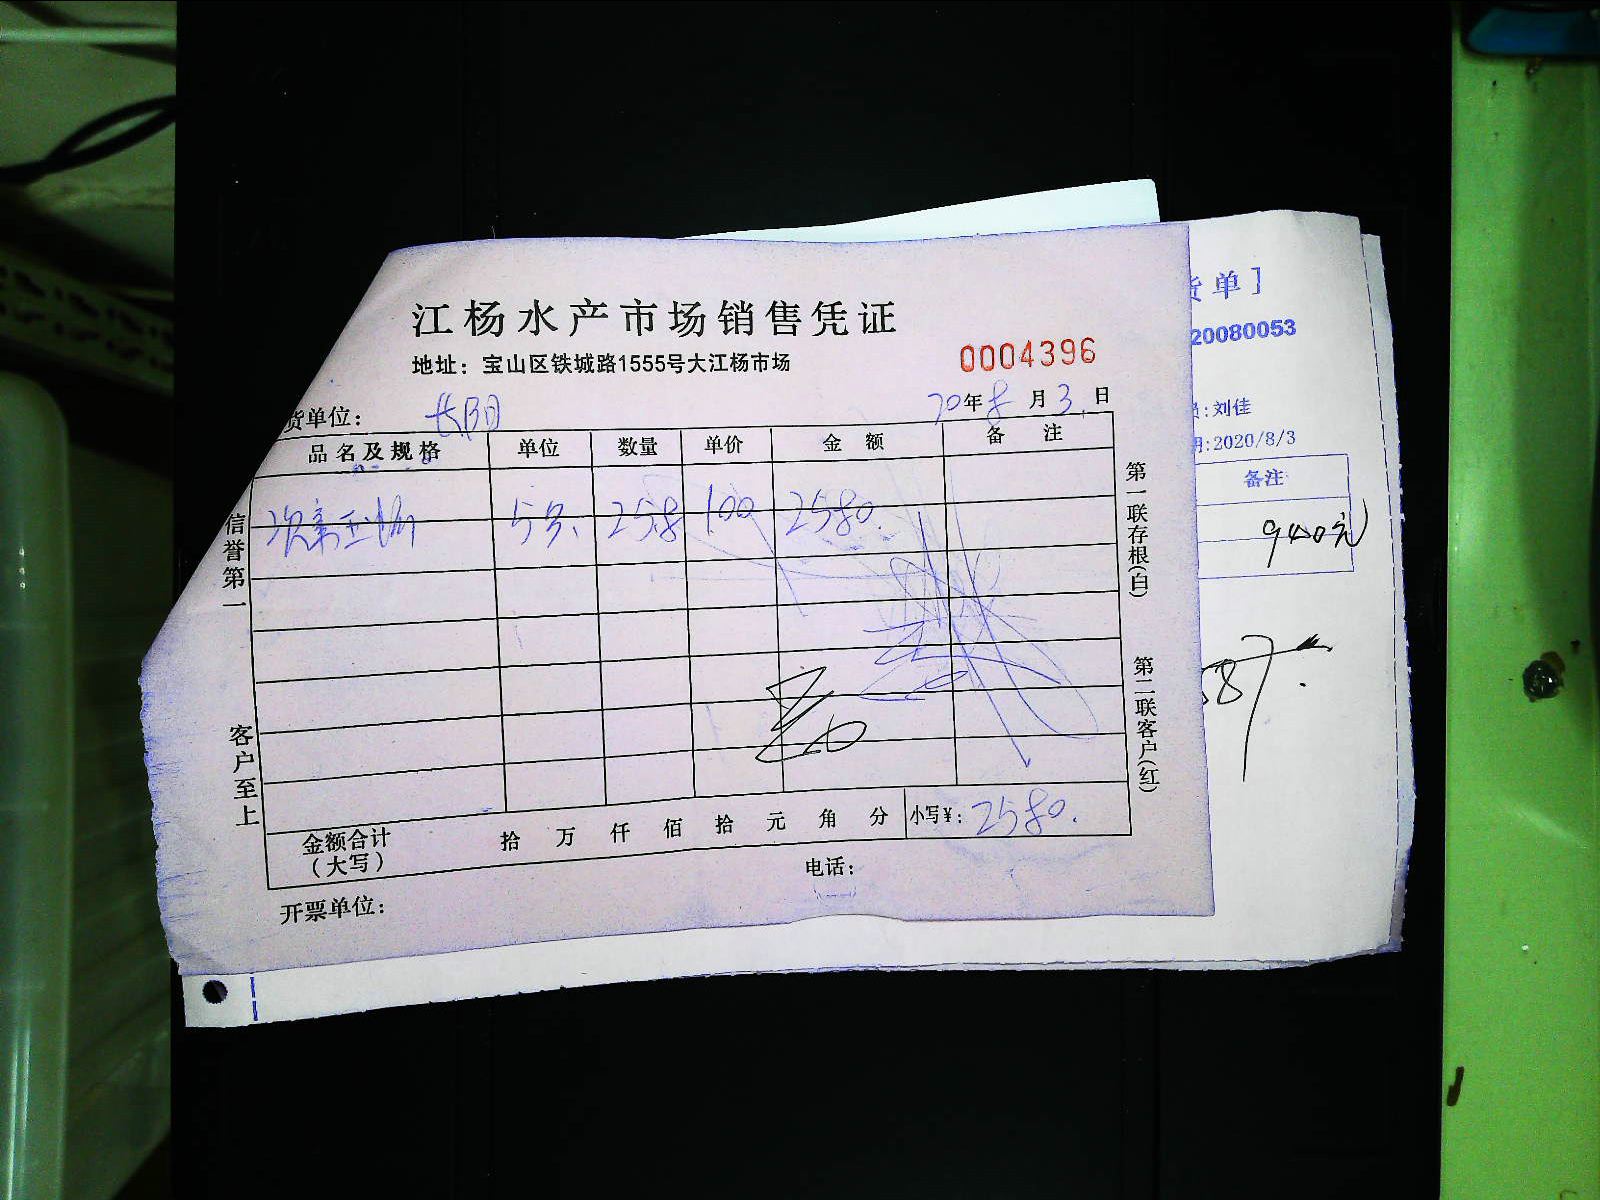 江杨水产市场销售凭证
地址：宝山区铁城路1555号大江杨市场
0004396
货单位： 长阳
20年8月3日
品名及规格 单位 数量 单价 金额 备注
25.8 100 2580.
金额合计（大写） 拾 万 仟 佰 拾 元 角 分 小写¥： 2580.
开票单位：
电话：
信誉第一
客户至上
第一联存根（白）
第二联客户（红）
货单]
20080053
员:刘佳
期:2020/8/3
备注
940元